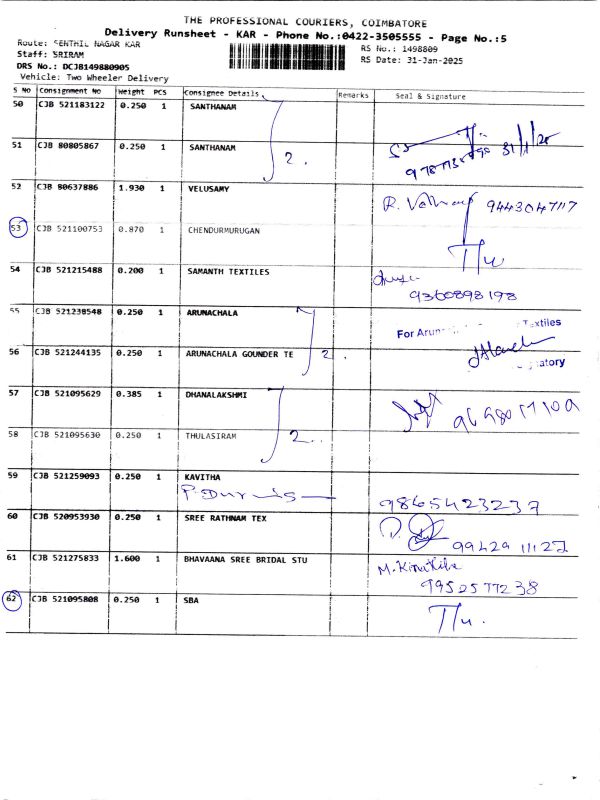 THE PROFESSIONAL COURIERS, COIMBATORE
Delivery Runsheet - KAR - Phone No.:0422-3505555 - Page No.:5
Route: SENTHIL NAGAR KAR
RS No.: 1498809
Staff: SRIRAM
RS Date: 31-Jan-2025
DRS No.: DCJB149880905
Vehicle: Two Wheeler Delivery
S No Consignment No Weight PCS Consignee Details Remarks Seal & Signature
50 CJB 521183122 0.250 1 SANTHANAM
51 CJB 80805867 0.250 1 SANTHANAM 2. 31/1/25
52 CJB 80637886 1.930 1 VELUSAMY 9443047117
53 CJB 521100753 0.870 1 CHENDURMURUGAN
54 CJB 521215488 0.200 1 SAMANTH TEXTILES
9360898198
55 CJB 521238548 0.250 1 ARUNACHALA
For Textiles
56 CJB 521244135 0.250 1 ARUNACHALA GOUNDER TE 2.
57 CJB 521095629 0.385 1 DHANALAKSHMI
58 CJB 521095630 0.250 1 THULASIRAM 2..
59 CJB 521259093 0.250 1 KAVITHA
9865423237
60 CJB 520953930 0.250 1 SREE RATHNAM TEX
9942911127
61 CJB 521275833 1.600 1 BHAVAANA SREE BRIDAL STU
9952577238
62 CJB 521095808 0.250 1 SBA